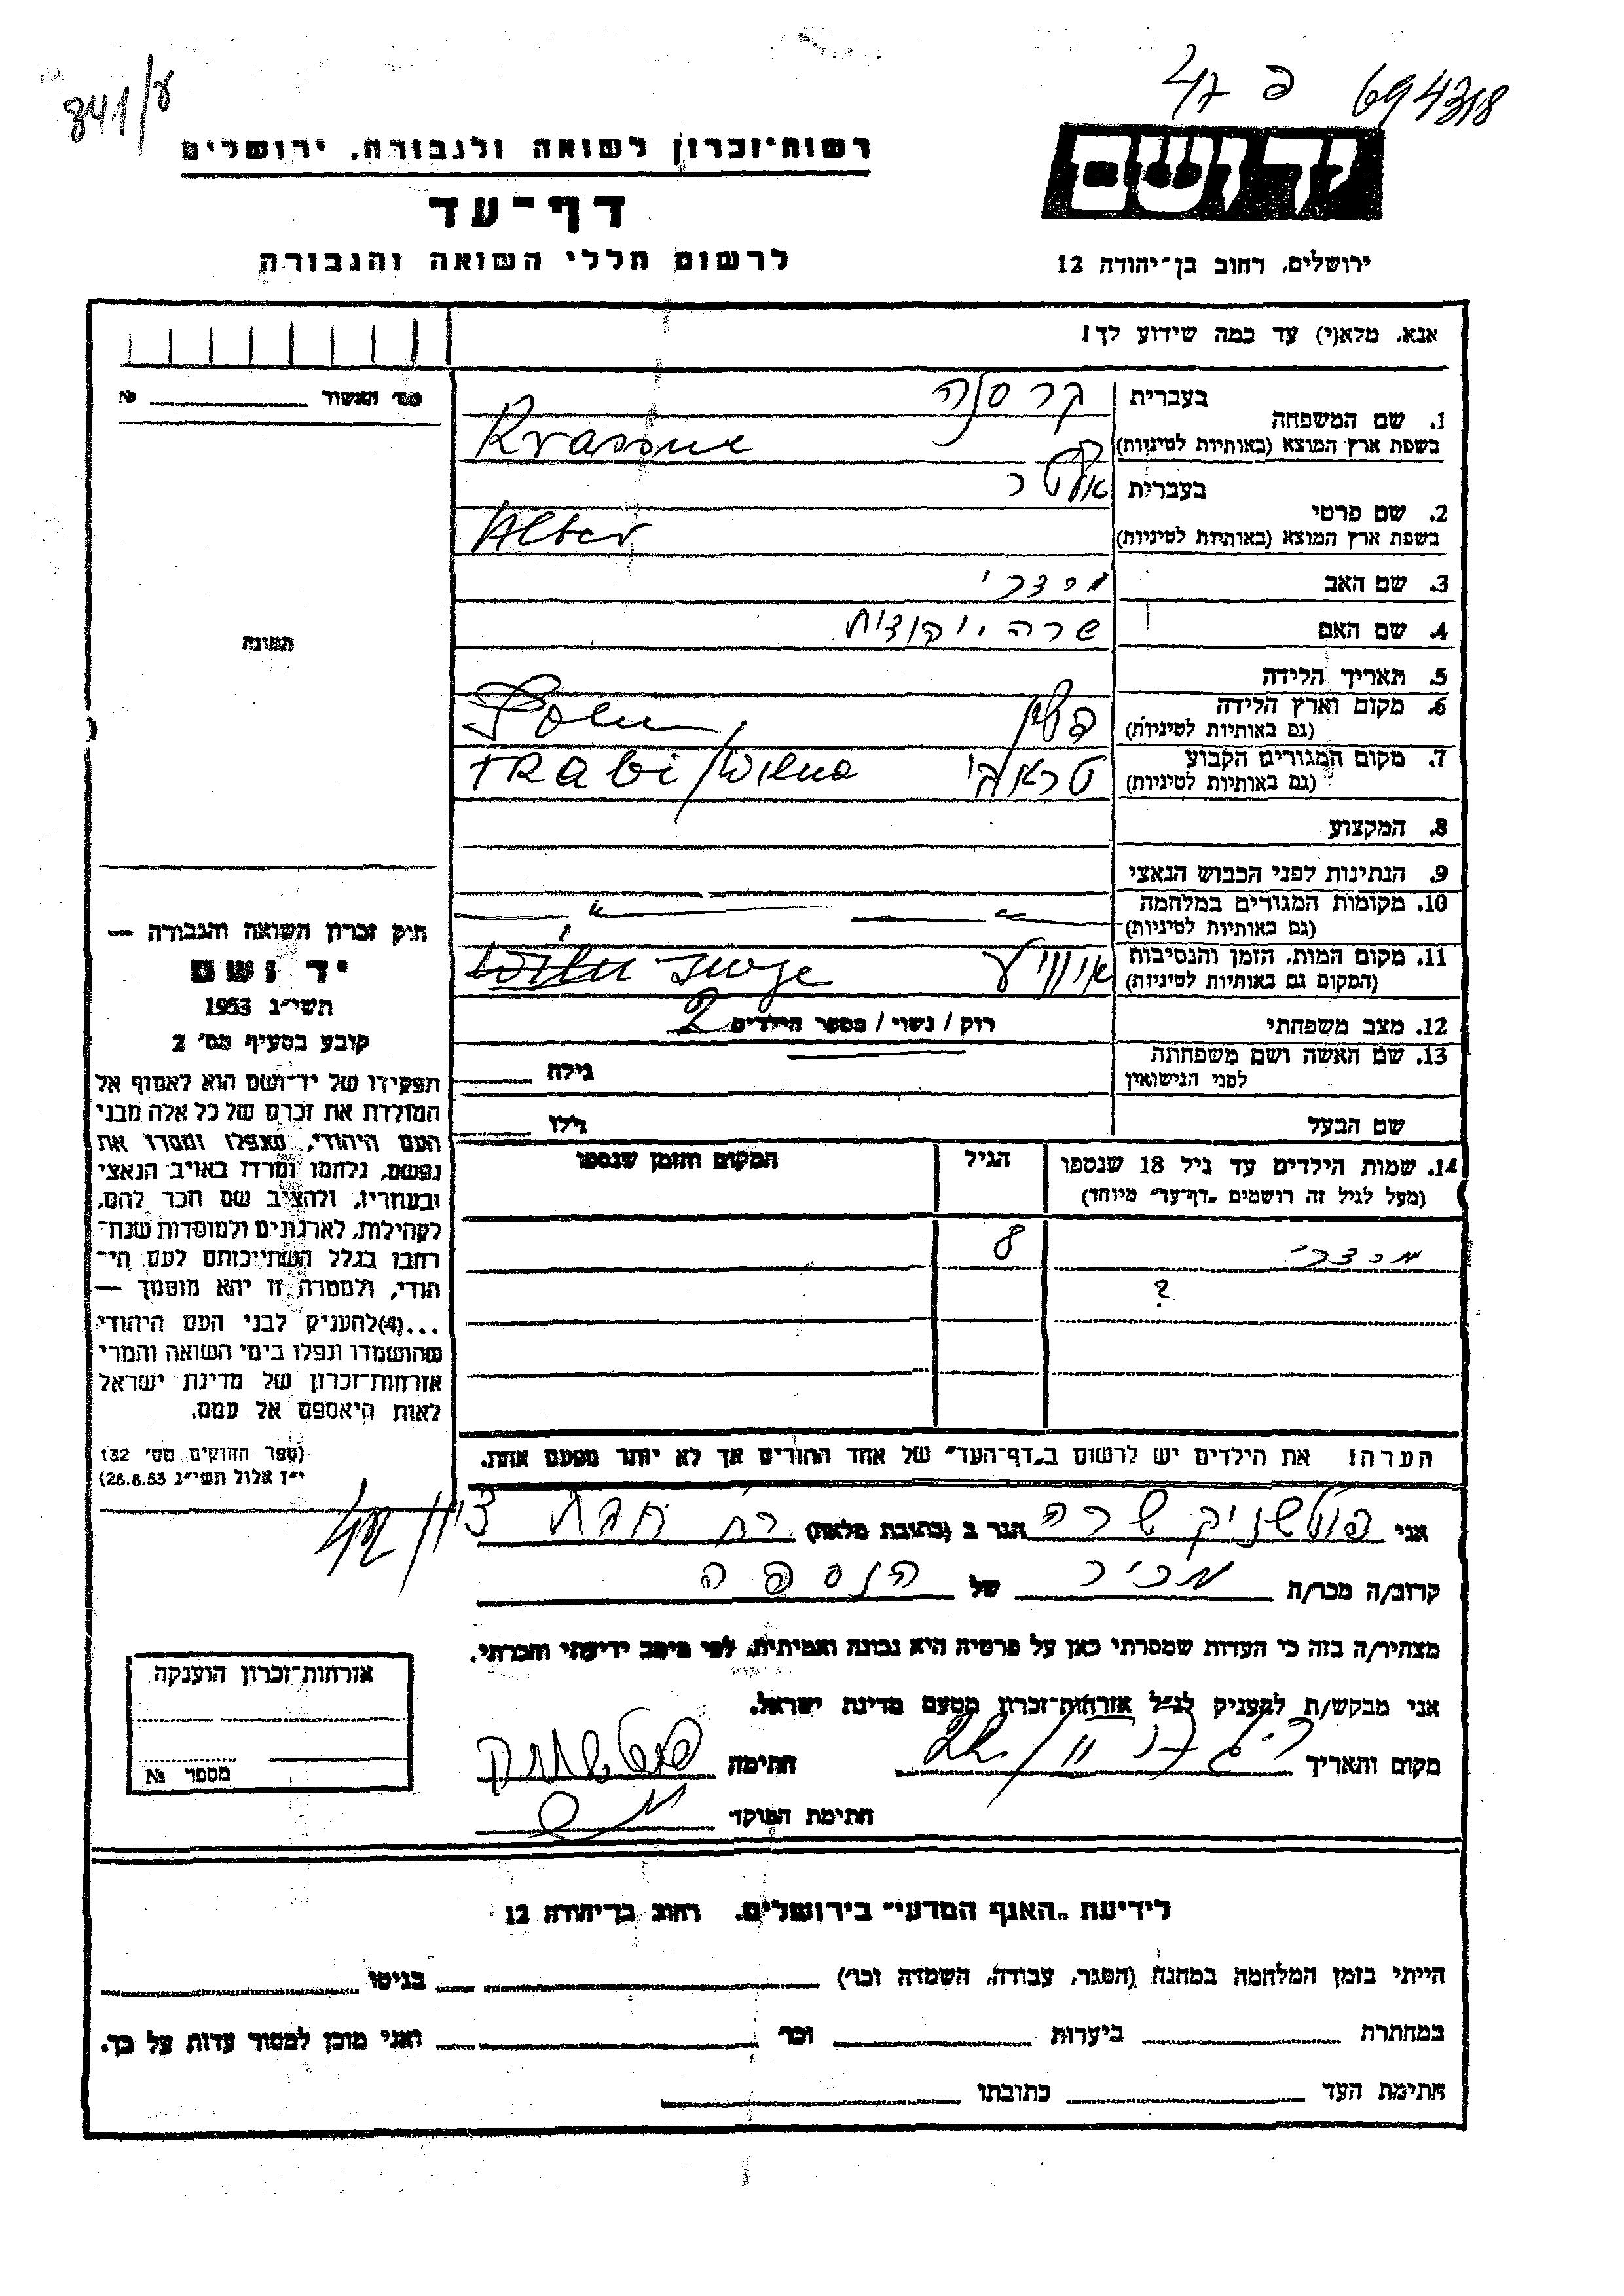 694318 פ 47
341/ע
יד ושם
ירושלים, רחוב בן־יהודה 12
רשות־זכרון לשואה ולגבורה, ירושלים
דף־עד
לרשום חללי השואה והגבורה
אנא, מלא(י) עד כמה שידוע לך!
מס׳ האשור № 
תמונה
1. שם המשפחה
בעברית קרסנה
בשפת ארץ המוצא (באותיות לטיניות) Krassne
2. שם פרטי
בעברית אלטר
בשפת ארץ המוצא (באותיות לטיניות) Alter
3. שם האב מרדכי
4. שם האם שרה יוכבד
5. תאריך הלידה
6. מקום וארץ הלידה פולין Polen
(גם באותיות לטיניות)
7. מקום המגורים הקבוע טראבי Trabi/Wilna
(גם באותיות לטיניות)
8. המקצוע
9. הנתינות לפני הכבוש הנאצי
10. מקומות המגורים במלחמה
(גם באותיות לטיניות)
11. מקום המות, הזמן והנסיבות
(המקום גם באותיות לטיניות)
12. מצב משפחתי רוק / נשוי / מספר הילדים 2
13. שם האשה ושם משפחתה
לפני הנישואין
גילה
שם הבעל גילו
14. שמות הילדים עד גיל 18 שנספו
(מעל לגיל זה רושמים „דף־עד״ מיוחד)
הגיל
המקום והזמן שנספו
מרדכי 8
?
הערה! את הילדים יש לרשום ב„דף־העד״ של אחד ההורים אך לא יותר מפעם אחת.
תיק זכרון השואה והגבורה —
יד ושם
תשי״ג 1953
קובע בסעיף מס׳ 2
תפקידו של יד־ושם הוא לאסוף אל
המולדת את זכרם של כל אלה מבני
העם היהודי, שנפלו ומסרו את
נפשם, נלחמו ומרדו באויב הנאצי
ובעוזריו, ולהציב שם וזכר להם,
לקהילות, לארגונים ולמוסדות שנח־
רבו בגלל השתייכותם לעם הי־
הודי, ולמטרה זו יהא מוסמך —
...(4)להעניק לבני העם היהודי
שהושמדו ונפלו בימי השואה והמרי
אזרחות־זכרון של מדינת ישראל
לאות היאספם אל עמם.
(ספר החוקים מס׳ 132
י״ז אלול תשי״ג 28.8.53)
אני פוטשניק שרה הגר ב (כתובת מלאה) רח׳ חבת ציון
קרוב/ה מכר/ה מכיר של הנספה
מצהיר/ה בזה כי העדות שמסרתי כאן על פרטיה היא נכונה ואמיתית, לפי מיטב ידיעתי והכרתי.
אני מבקש/ת להעניק לנ״ל אזרחות־זכרון מטעם מדינת ישראל.
מקום ותאריך
חתימה פוטשניק
חתימת הפוקד
אזרחות־זכרון הוענקה
מספר №
לידיעת „האגף המדעי״ בירושלים, רחוב בן־יהודה 12
הייתי בזמן המלחמה במחנה (הסגר, עבודה, השמדה וכו׳) בגיטו
במחתרת ביערות וכו׳ ואני מוכן למסור עדות על כך.
חתימת העד כתובתו